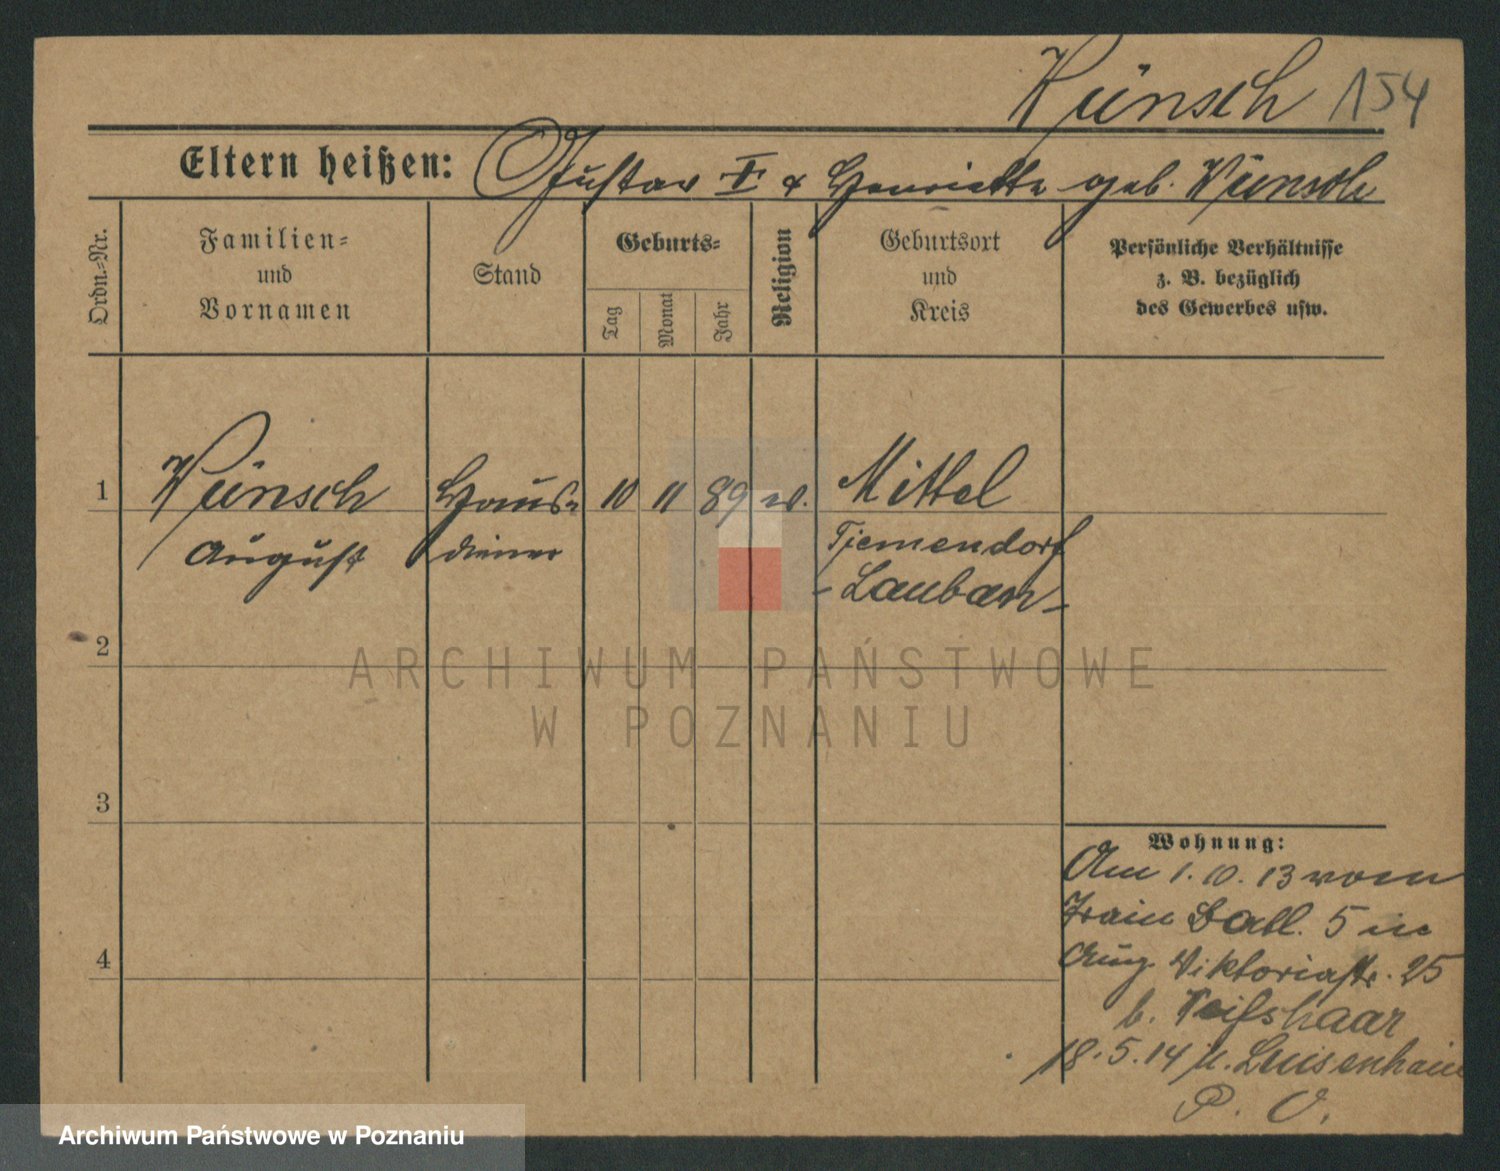 Wünsch 154
Eltern heißen: Gustav W & Henriette geb. Wünsch
Ordn.=Nr.
Familien=
und
Vornamen
Stand
Geburts=
Tag
Monat
Jahr
Religion
Geburtsort
und
Kreis
Persönliche Verhältnisse
z. B. bezüglich
des Gewerbes usw.
1 Wünsch Haus= 10 11 89 ev. Mittel
August diener
-Lauban-
2
3
4
Wohnung:
Am 1. 10. 13 vom
Train Batl. 5 in
Aug. Viktoriastr. 25
b. Weißhaar
18. 5. 14 n. Luisenhain
P. O.
ARCHIWUM PAŃSTWOWE
W POZNANIU
Archiwum Państwowe w Poznaniu